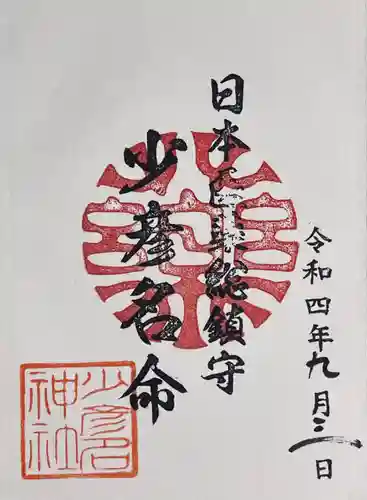 令和四年九月三日
日本医薬総鎮守
少彦名命
少彦名
神社